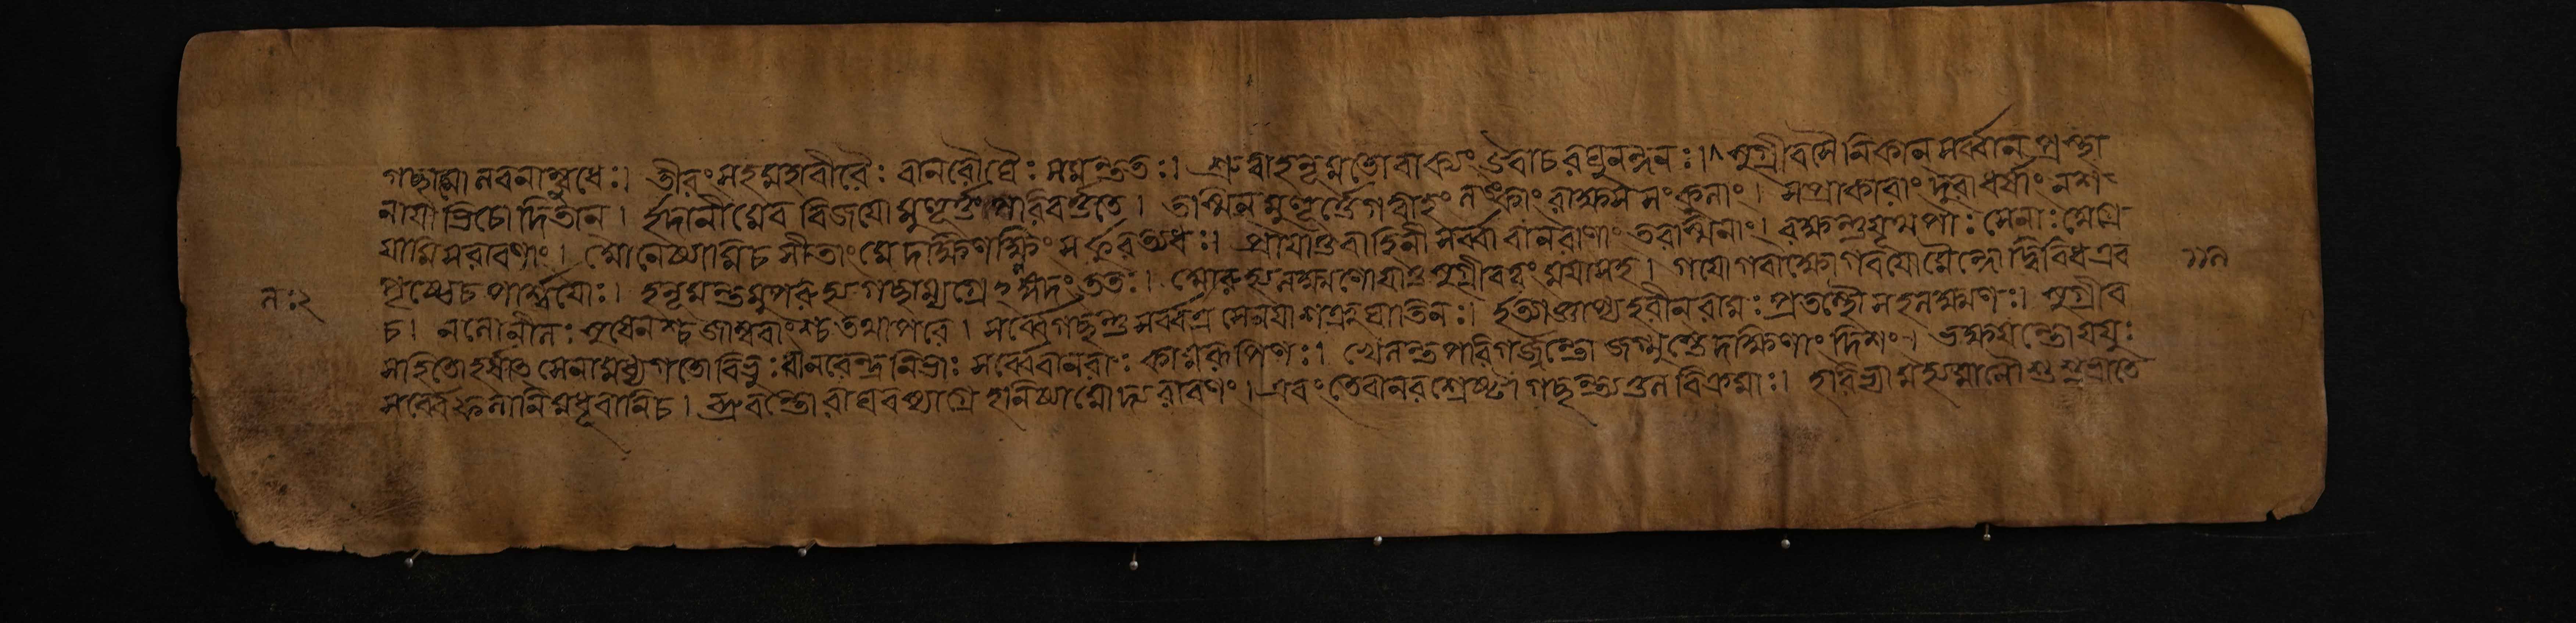 গচ্ছামো নবনাম্বুধেঃ। তীরং সহ মহাবীরৈঃ বানরৌঘৈঃ সমন্ততঃ। শ্রুত্বা হনূমতো বাক্যং উবাচ রঘুনন্দনঃ। সুগ্রীব সৈনিকান সর্ব্বান প্রস্থা
নায়াভিচোদিতান। ইদানীমেব বিজয়ো মুহূর্ত্তঃ পরিবর্ত্ততে। তস্মিন মুহূর্ত্তে গত্বাহং লঙ্কাং রাক্ষসসংকুলাং। সপ্রাকারাং দুরাধর্ষাং নাশ
য়ামি সরাবণাং। আনেষ্যামি চ সীতাং মে দক্ষিণাক্ষি স্ফুরত্যধঃ। প্রয়াতু বাহিনী সর্ব্বা বানরাণাং তরস্বিনাং। রক্ষন্তু যূথপাঃ সেনাঃ অগ্রে
পৃষ্ঠে চ পার্শ্বয়োঃ। হনূমন্তমুপরুহ্য গচ্ছাম্যগ্রেহঙ্গদং ততঃ। আরুহ্য লক্ষ্মণো যাতু সুগ্রীব ত্বং ময়া সহ। গয়ো গবাক্ষো গবয়ো মৈন্দো দ্বিবিধ এব
চ। নলো নীলঃ সুষেণশ্চ জাম্বুবাংশ্চ তথাপরে। সর্ব্বে গচ্ছন্তু সর্ব্বত্র সেনায়াঃ শত্রুঘাতিনঃ। ইত্যাজ্ঞাপ্য হরীন রামঃ প্রতস্থৌ সহলক্ষ্মণঃ। সুগ্রীব
সহিতো হর্ষাৎ সেনামধ্যগতো বিভুঃ বানরেন্দ্রনিভাঃ সর্ব্বে বানরাঃ কামরূপিণঃ। খেলন্ত পরিগর্জ্জন্তো জগ্মুস্তে দক্ষিণাং দিশং। ভক্ষয়ন্তো যযুঃ
সর্ব্বে ফলানি মধূবানি চ। ব্রুবন্তো রাঘবস্যাগ্রে হনিষ্যামোদ্য রাবণং। এবং তে বানরশ্রেষ্ঠা গচ্ছন্ত্যতুল বিক্রমাঃ। হরিভ্যামুহ্যমানৌ শুশুভাতে
লঃ২